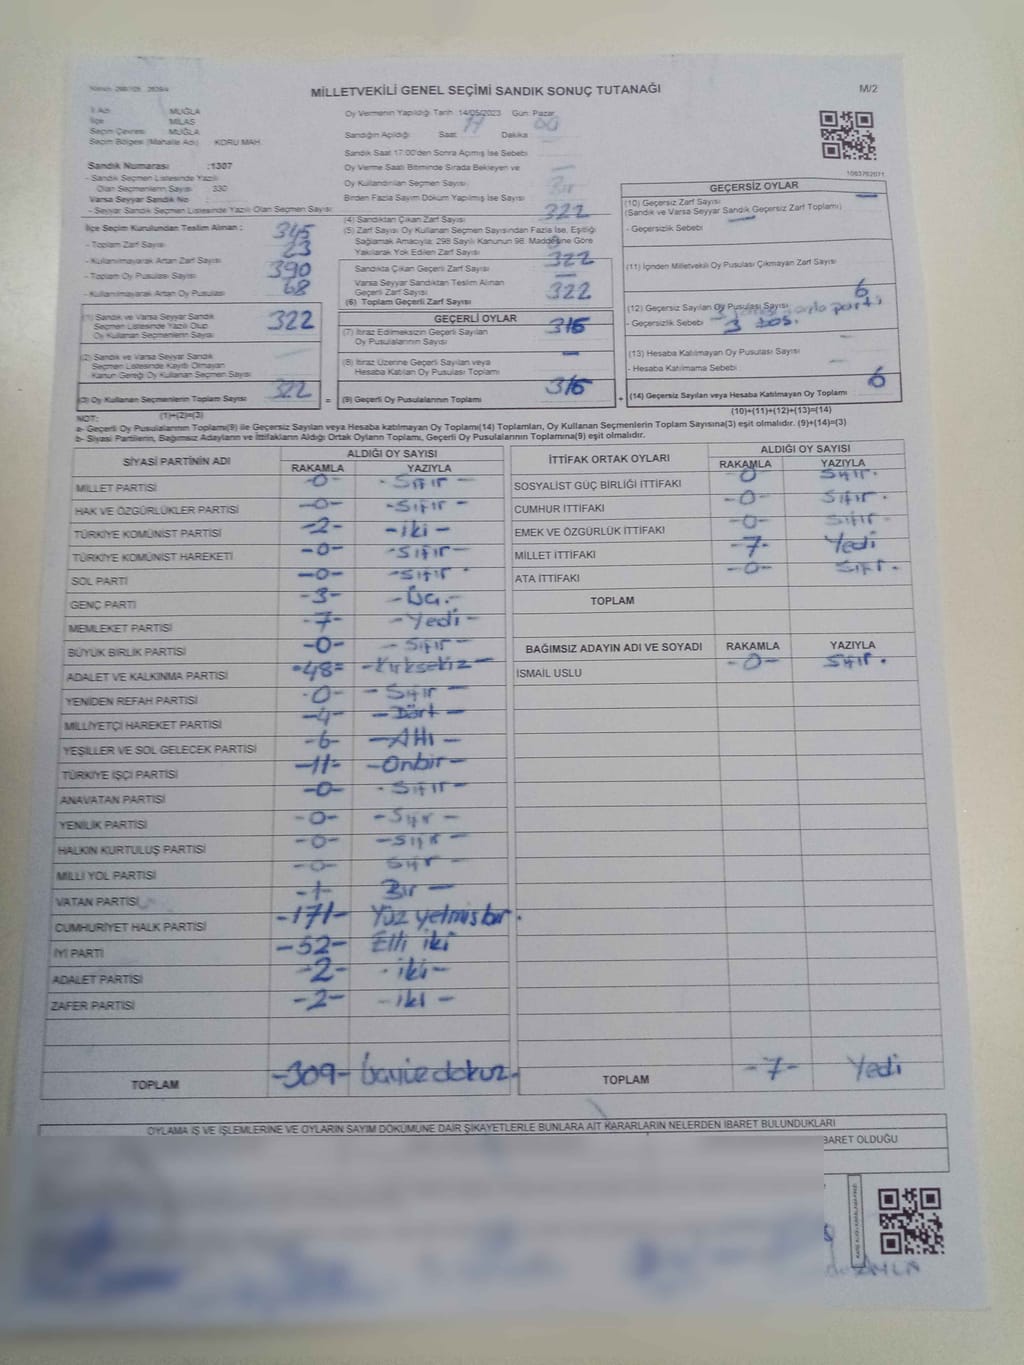 MİLLETVEKİLİ GENEL SEÇİMİ SANDIK SONUÇ TUTANAĞI
M/2
İl Adı MUĞLA
İlçe MİLAS
Seçim Çevresi MUĞLA
Seçim Bölgesi (Mahalle Adı) KORU MAH.
Sandık Numarası :1307
- Sandık Seçmen Listesinde Yazılı
Olan Seçmenlerin Sayısı 330
Varsa Seyyar Sandık No
- Seyyar Sandık Seçmen Listesinde Yazılı Olan Seçmen Sayısı
İlçe Seçim Kurulundan Teslim Alınan ; 345
- Toplam Zarf Sayısı 23
- Kullanılmayarak Artan Zarf Sayısı 390
- Toplam Oy Pusulası Sayısı 68
- Kullanılmayarak Artan Oy Pusulası
(1) Sandık ve Varsa Seyyar Sandık
Seçmen Listesinde Yazılı Olup 322
Oy Kullanan Seçmenlerin Sayısı
(2) Sandık ve Varsa Seyyar Sandık
Seçmen Listesinde Kaydı Olmayan
Kanun Gereği Oy Kullanan Seçmen Sayısı
(3) Oy Kullanan Seçmenlerin Toplam Sayısı 322
(1)+(2)=(3)
Oy Vermenin Yapıldığı Tarih :14/05/2023 Gün: Pazar
Sandığın Açıldığı Saat 17 Dakika 00
Sandık Saat 17:00'den Sonra Açımış İse Sebebi
Oy Verme Saati Bitiminde Sırada Bekleyen ve
Oy Kullandırılan Seçmen Sayısı
Birden Fazla Sayım Döküm Yapılmış İse Sayısı Bir
(4) Sandıktan Çıkan Zarf Sayısı 322
(5) Zarf Sayısı Oy Kullanan Seçmen Sayısından Fazla İse, Eşitliği
Sağlamak Amacıyla; 298 Sayılı Kanunun 98. Maddesine Göre
Yakılarak Yok Edilen Zarf Sayısı
Sandıkta Çıkan Geçerli Zarf Sayısı 322
Varsa Seyyar Sandıktan Teslim Alınan
Geçerli Zarf Sayısı
(6) Toplam Geçerli Zarf Sayısı 322
GEÇERLİ OYLAR
(7) İtiraz Edilmeksizin Geçerli Sayılan 316
Oy Pusulalarının Sayısı
(8) İtiraz Üzerine Geçerli Sayılan veya
Hesaba Katılan Oy Pusulası Toplamı
(9) Geçerli Oy Pusulalarının Toplamı 316
1063762071
GEÇERSİZ OYLAR
(10) Geçersiz Zarf Sayısı
(Sandık ve Varsa Seyyar Sandık Geçersiz Zarf Toplamı)
- Geçersizlik Sebebi
(11) İçinden Milletvekili Oy Pusulası Çıkmayan Zarf Sayısı
(12) Geçersiz Sayılan Oy Pusulası Sayısı 6
- Geçersizlik Sebebi
(13) Hesaba Katılmayan Oy Pusulası Sayısı
- Hesaba Katılmama Sebebi
(14) Geçersiz Sayılan veya Hesaba Katılmayan Oy Toplamı 6
(10)+(11)+(12)+(13)=(14)
NOT:
a- Geçerli Oy Pusulalarının Toplamı(9) ile Geçersiz Sayılan veya Hesaba katılmayan Oy Toplamı(14) Toplamları, Oy Kullanan Seçmenlerin Toplam Sayısına(3) eşit olmalıdır. (9)+(14)=(3)
b- Siyasi Partilerin, Bağımsız Adayların ve İttifakların Aldığı Ortak Oyların Toplamı, Geçerli Oy Pusulalarının Toplamına(9) eşit olmalıdır.
SİYASİ PARTİNİN ADI ALDIĞI OY SAYISI
RAKAMLA YAZIYLA
MİLLET PARTİSİ -0- - Sıfır -
HAK VE ÖZGÜRLÜKLER PARTİSİ -0- -Sıfır -
TÜRKİYE KOMÜNİST PARTİSİ -2- -iki -
TÜRKİYE KOMÜNİST HAREKETİ -0- -Sıfır-
SOL PARTİ -0- -Sıfır-
GENÇ PARTİ -3- -Üç.-
MEMLEKET PARTİSİ -7- -Yedi-
BÜYÜK BİRLİK PARTİSİ -0- -Sıfır-
ADALET VE KALKINMA PARTİSİ -48- -Kırksekiz-
YENİDEN REFAH PARTİSİ -0- -Sıfır-
MİLLİYETÇİ HAREKET PARTİSİ -4- -Dört-
YEŞİLLER VE SOL GELECEK PARTİSİ -6- -Altı-
TÜRKİYE İŞÇİ PARTİSİ -11- -Onbir-
ANAVATAN PARTİSİ -0- -Sıfır-
YENİLİK PARTİSİ -0- -Sıfır-
HALKIN KURTULUŞ PARTİSİ -0- -Sıfır-
MİLLİ YOL PARTİSİ -0- Sıfır-
VATAN PARTİSİ -1- Bir-
CUMHURİYET HALK PARTİSİ -171- Yüz yetmişbir.
İYİ PARTİ -52- Elli iki
ADALET PARTİSİ -2- -iki-
ZAFER PARTİSİ -2- -iki-
TOPLAM -309- üçyüzdokuz.
İTTİFAK ORTAK OYLARI ALDIĞI OY SAYISI
RAKAMLA YAZIYLA
SOSYALİST GÜÇ BİRLİĞİ İTTİFAKI -0- Sıfır.
CUMHUR İTTİFAKI -0- Sıfır.
EMEK VE ÖZGÜRLÜK İTTİFAKI -0- Sıfır.
MİLLET İTTİFAKI -7- Yedi
ATA İTTİFAKI -0- Sıfır.
TOPLAM
BAĞIMSIZ ADAYIN ADI VE SOYADI RAKAMLA YAZIYLA
İSMAİL USLU -0- Sıfır.
TOPLAM -7- Yedi
OYLAMA İŞ VE İŞLEMLERİNE VE OYLARIN SAYIM DÖKÜMÜNE DAİR ŞİKAYETLERLE BUNLARA AİT KARARLARIN NELERDEN İBARET BULUNDUKLARI
BARET OLDUĞU